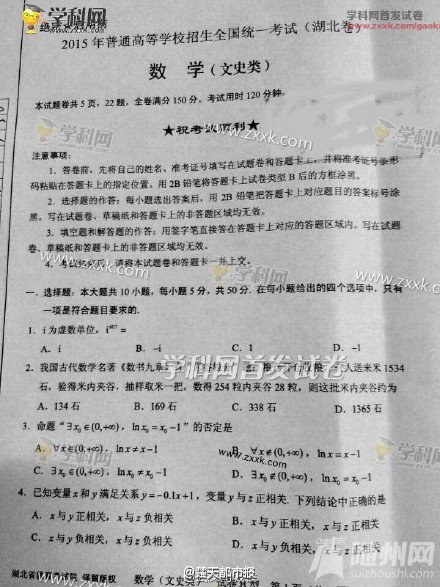 学科网
学科网首发试卷
www.zxxk.com/gaokao
2015年普通高等学校招生全国统一考试(湖北卷)
数 学(文史类)
本试题卷共5页,22题。全卷满分150分。考试用时120分钟。
★祝考试顺利★
注意事项:
1.答卷前,先将自己的姓名、准考证号填写在试题卷和答题卡上,并将准考证号条形
码粘贴在答题卡上的指定位置。用2B铅笔将答题卡上试卷类型B后的方框涂黑。
2.选择题的作答:每小题选出答案后,用2B铅笔把答题卡上对应题目的答案标号涂
黑。写在试题卷、草稿纸和答题卡上的非答题区域均无效。
3.填空题和解答题的作答:用签字笔直接答在答题卡上对应的答题区域内。写在试题
卷、草稿纸和答题卡上的非答题区域均无效。
4.考试结束后,请将本试题卷和答题卡一并上交。
一、选择题:本大题共10小题,每小题5分,共50分。在每小题给出的四个选项中,只有
一项是符合题目要求的.
1.i为虚数单位,i⁶⁰⁷=
A.i B.-i C.1 D.-1
2.我国古代数学名著《数书九章》 人送来米1534
石,验得米内夹谷,抽样取米一把,数得254粒内夹谷28粒,则这批米内夹谷约为
A.134石 B.169石 C.338石 D.1365石
3.命题“∃x₀∈(0,+∞),ln x₀=x₀-1”的否定是
A.∀x∈(0,+∞),ln x≠x-1 B.∀x∉(0,+∞),ln x=x-1
C.∃x₀∈(0,+∞),ln x₀≠x₀-1 D.∃x₀∉(0,+∞),ln x₀=x₀-1
4.已知变量x和y满足关系y=-0.1x+1,变量y与z正相关.下列结论中正确的是
A.x与y正相关,x与z负相关 B.x与y正相关,x与z正相关
C.x与y负相关,x与z负相关 D.x与y负相关,x与z正相关
湖北省教育考试院 保留版权 数学(文史类) 试卷B型
@楚天都市报
随州网
学科网首发试卷
www.zxxk.com